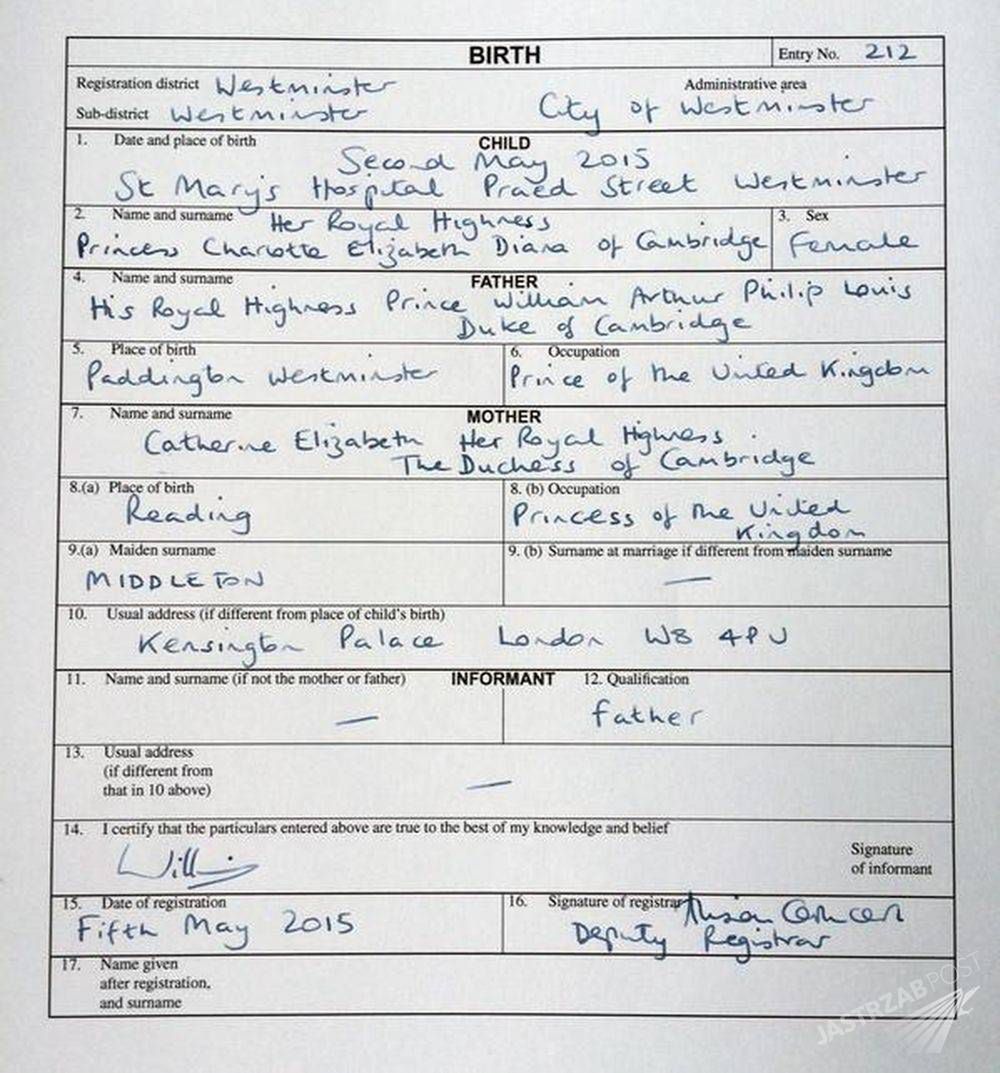 BIRTH
Entry No. 212
Registration district Westminster
Administrative area
Sub-district Westminster
City of Westminster
1. Date and place of birth
CHILD
Second May 2015
St Mary's Hospital Praed Street Westminster
2. Name and surname
Her Royal Highness
Princess Charlotte Elizabeth Diana of Cambridge
3. Sex
Female
4. Name and surname
FATHER
His Royal Highness Prince William Arthur Philip Louis
Duke of Cambridge
5. Place of birth
Paddington Westminster
6. Occupation
Prince of the United Kingdom
7. Name and surname
MOTHER
Catherine Elizabeth Her Royal Highness
The Duchess of Cambridge
8.(a) Place of birth
Reading
8. (b) Occupation
Princess of the United
Kingdom
9.(a) Maiden surname
MIDDLETON
9. (b) Surname at marriage if different from maiden surname
—
10. Usual address (if different from place of child's birth)
Kensington Palace London W8 4PU
11. Name and surname (if not the mother or father)
INFORMANT
—
12. Qualification
Father
13. Usual address
(if different from
that in 10 above)
—
14. I certify that the particulars entered above are true to the best of my knowledge and belief
William
Signature
of informant
15. Date of registration
Fifth May 2015
16. Signature of registrar
Alison
Deputy Registrar
17. Name given
after registration,
and surname
JASTRZABPOST